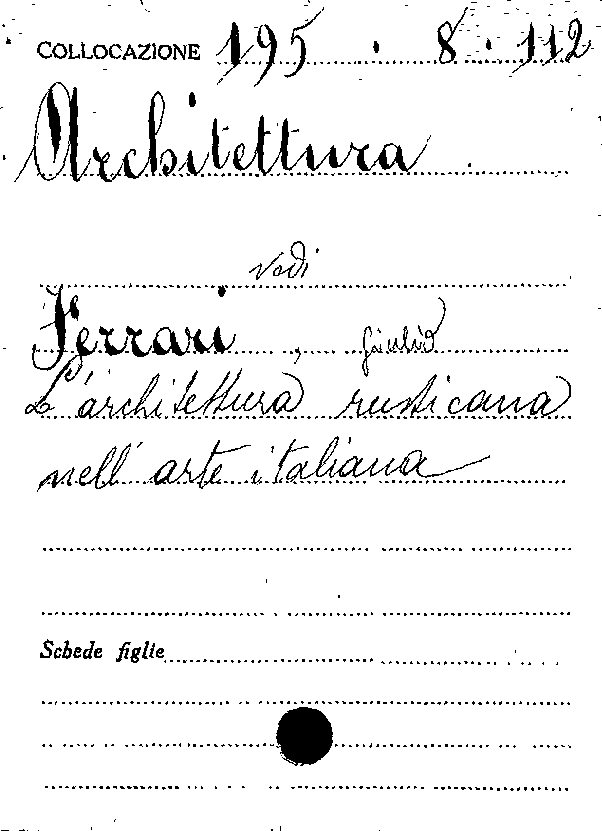 COLLOCAZIONE 195 . 8 . 112
Architettura
vedi
Ferrari, Giulio
L'architettura rusticana
nell'arte italiana
Schede figlie